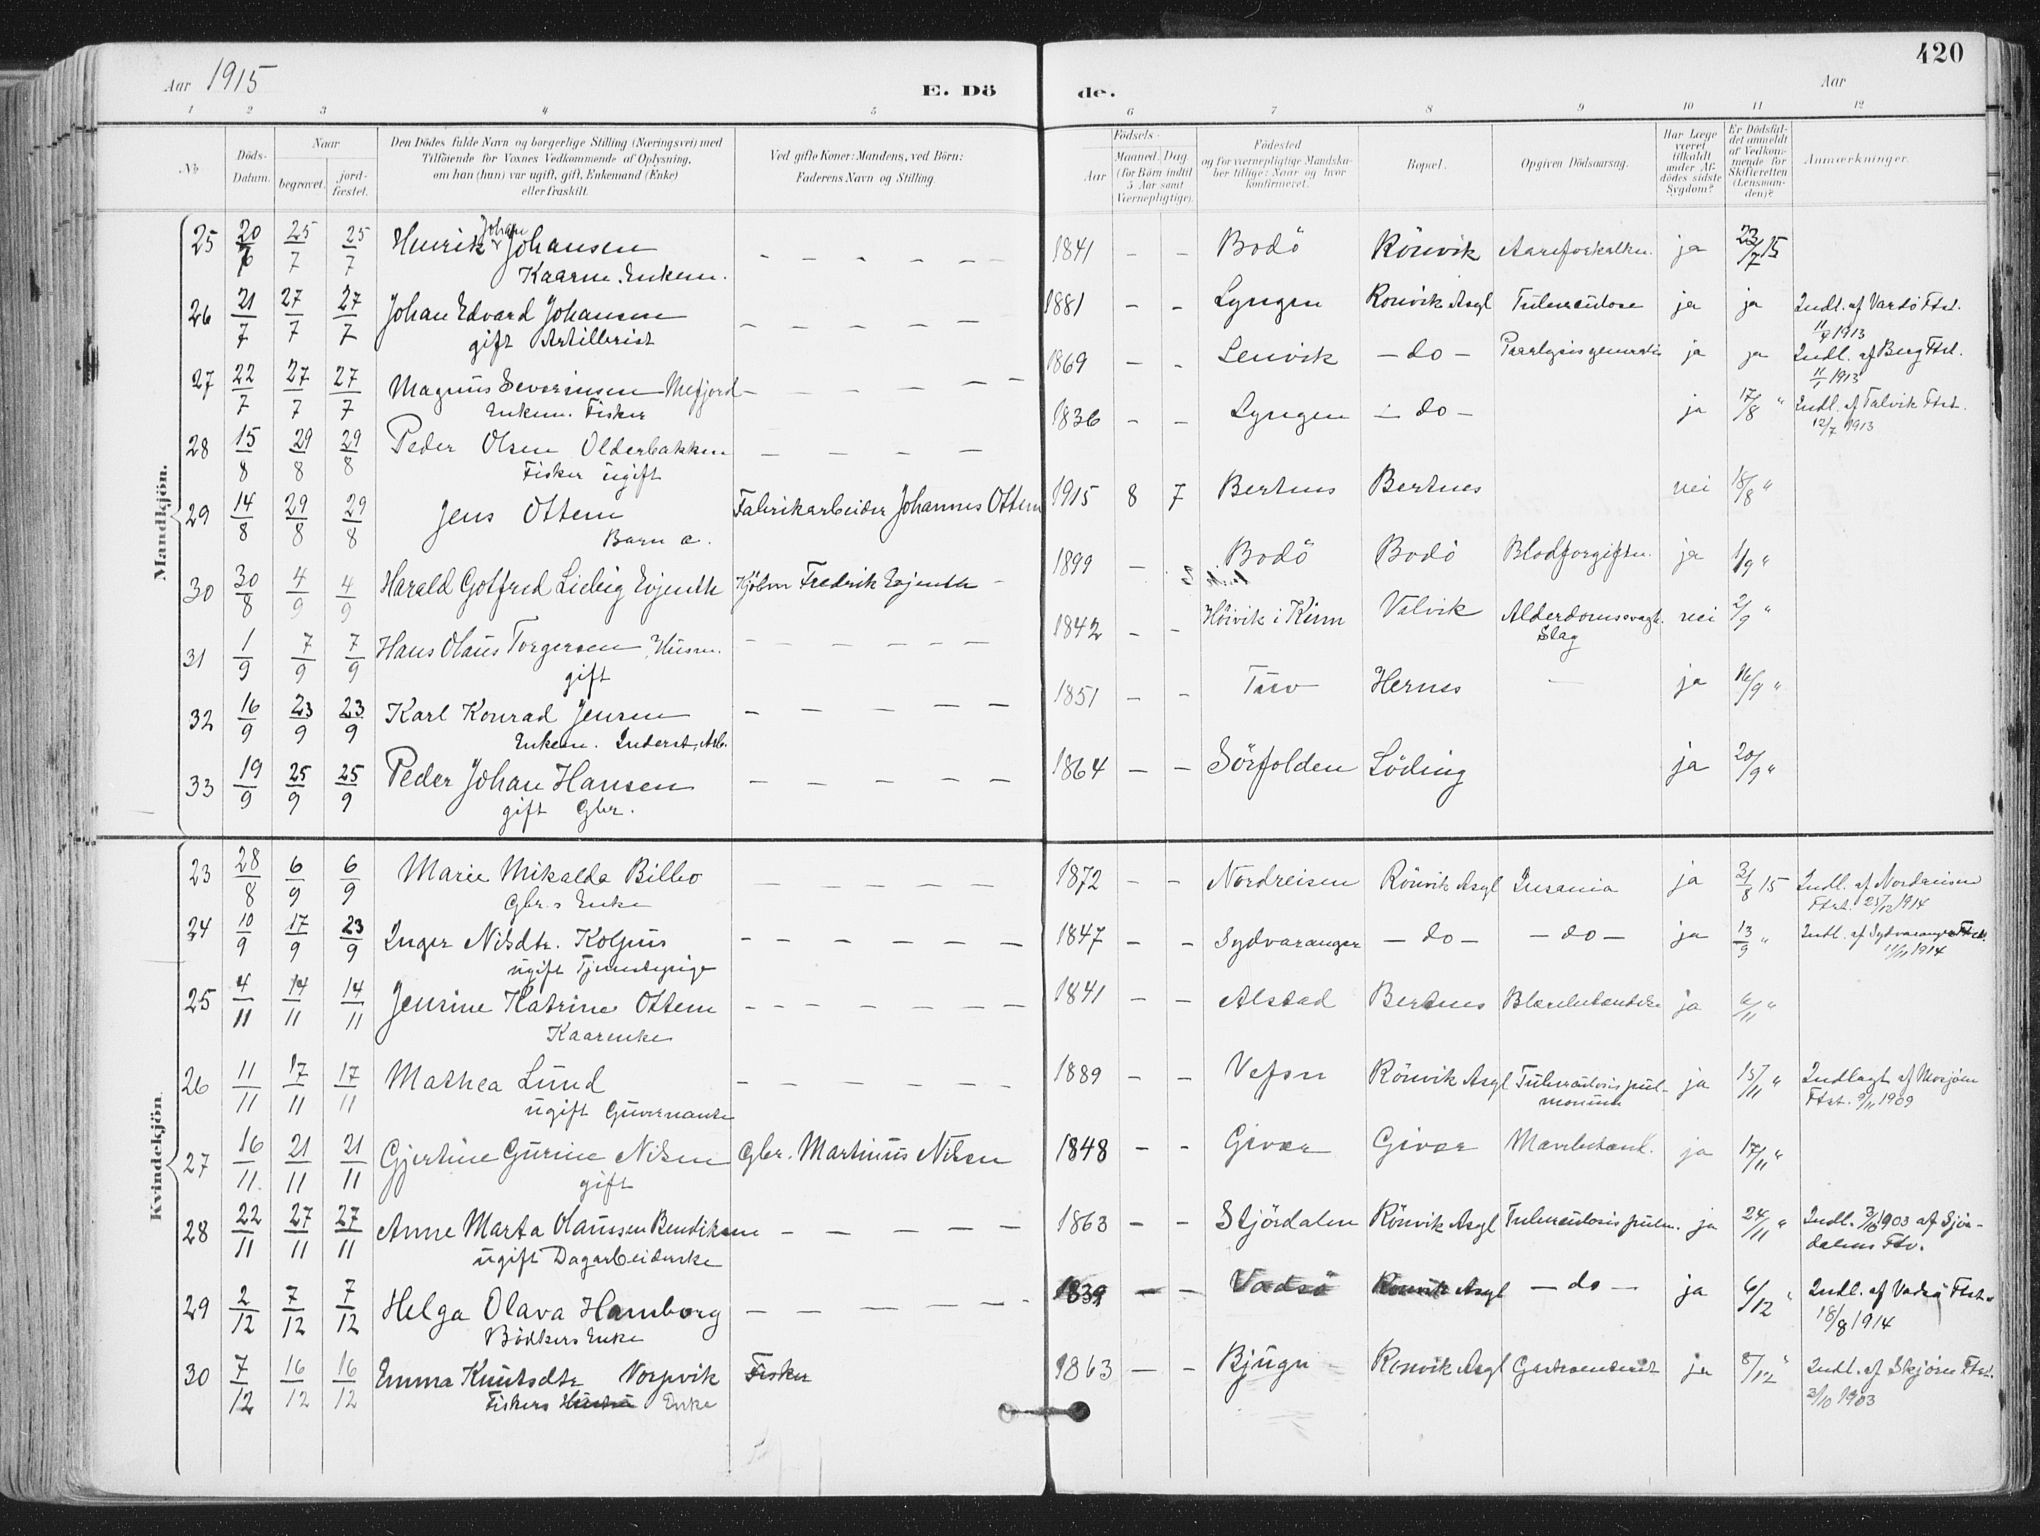 Aar 1915
E. Dö
de.
Aar
420
1 2 3 4 5 6 7 8 9 10 11 12
No
Döds-Datum.
Naar
begravet.
jord-fæstet.
Den Dödes fulde Navn og borgerlige Stilling (Næringsvei) med
Tilföiende for Voxnes Vedkommende af Oplysning,
om han (hun) var ugift, gift, Enkemand (Enke)
eller fraskilt.
Ved gifte Koner: Mandens, ved Börn:
Faderens Navn og Stilling.
Födsels-
Aar
Maaned. Dag
(for Börn indtil
5 Aar samt
Værnepligtige).
Födested
og for værnepligtige Mandska-
ber tillige: Naar og hvor
konfirmeret.
Bopæl.
Opgiven Dödsaarsag.
Har Læge
været
tilkaldt
under Af-
dödes sidste
Sygdom?
Er Dödsfal-
det anmeldt
af Vedkom-
mende for
Skifteretten
(Lensman-
den)?
Anmærkninger.
Mandkjön.
25 20/7 25/7 25/7 Henrik Johan Johansen — — — — — — 1841 — — Bodö Rönvik Aareforkalkn. ja 23/7 15
Kaarm. Enkem.
26 21/7 27/7 27/7 Johan Edvard Johansen — — — — — 1881 — — Lyngen Rönvik Asyl Tuberculose ja ja Indl. af Vardö Ftst.
gift Artillerist 1913
27 22/7 27/7 27/7 Magnus Severinsen Mefjord — — — — — 1869 — — Lenvik — do — Paralysis generalis ja ja Indl. af Berg Ftst.
Enkem. Fisker 1913
28 15/8 29/8 29/8 Peder Olsen Olderbakken — — — — 1836 — — Lyngen — do — ja 17/8 " Indl. af Talvik Ftst.
Fisker ugift 12/7 1913
29 14/8 29/8 29/8 Jens Ottem Fabrikarbeider Johannes Ottem 1915 8 7 Bertnes Bertnes nei 18/8 "
Barn a.
30 30/8 4/9 4/9 Harald Gotfred Liebig Evjenth Kjöbm Fredrik Evjenth — 1899 — Bodö Bodö Blodforgiftn. ja 1/9 "
31 1/9 7/9 7/9 Hans Olaus Torgersen, Husm. — — — — — — 1842 — — Höivik i Kinn Valvik Alderdomssvagh. nei 2/9 "
gift Slag
32 16/9 23/9 23/9 Karl Konrad Jensen — — — — — 1851 — — Hernes — ja 16/9 "
Enkem. Inderst, Arb.
33 19/9 25/9 25/9 Peder Johan Hansen — — — — — 1864 — — Sörfolden Löding ja 20/9 "
gift Gbr.
Kvindekjön.
23 28/8 6/9 6/9 Marie Mikalda Bilbo — — — — — 1872 — — Nordreisen Rönvik Asyl Insania ja 31/8 15 Indl. af Nordreisen
Gbr.s Enke Ftst. 25/12 1914
24 10/9 17/9 23/9 Inger Nilsdtr. Kolpus — — — — — — 1847 — — Sydvaranger — do — — do — ja 13/9 " Indl. af Sydvaranger Ftst.
ugift Tjenestepige 1914
25 4/11 14/11 14/11 Jensine Katrine Ottem — — — — — — — 1841 — — Alstad Bertnes Blærebetændelse ja 6/11 "
Kaarenke
26 11/11 17/11 17/11 Mathea Lund — — — — — — 1889 — — Vefsn Rönvik Asyl Tuberculosis pul- ja 15/11 " Indlagt af Mosjöen
ugift Guvernante monum Ftst. 9/11 1909
27 16/11 21/11 21/11 Gjertine Gurine Nilsen Gbr. Martinus Nilsen 1848 — — Givær Givær Mavebetænd. ja 17/11 "
gift
28 22/11 27/11 27/11 Anne Marta Olaussen Bendiksen — — — — 1863 — — Stjördalen Rönvik Asyl Tuberculosis pulm. ja 24/11 " Indl. 3/10 1903 af Stjör-
ugift Dagarbeiderske dalens Ftv.
29 2/12 7/12 7/12 Helga Olava Hamborg — — — — — — 1839 — — Vadsö Rönvik Asyl — do — ja 6/12 " Indl. af Vadsö Ftst.
Bödkers Enke 18/8 1914
30 7/12 16/12 16/12 Emma Knutsdtr Vorpvik Fisker 1863 — — Bjugn Rönvik Asyl ja 8/12 " Indl. af Skjörn Ftst.
Fiskers Hustru Enke 3/10 1903